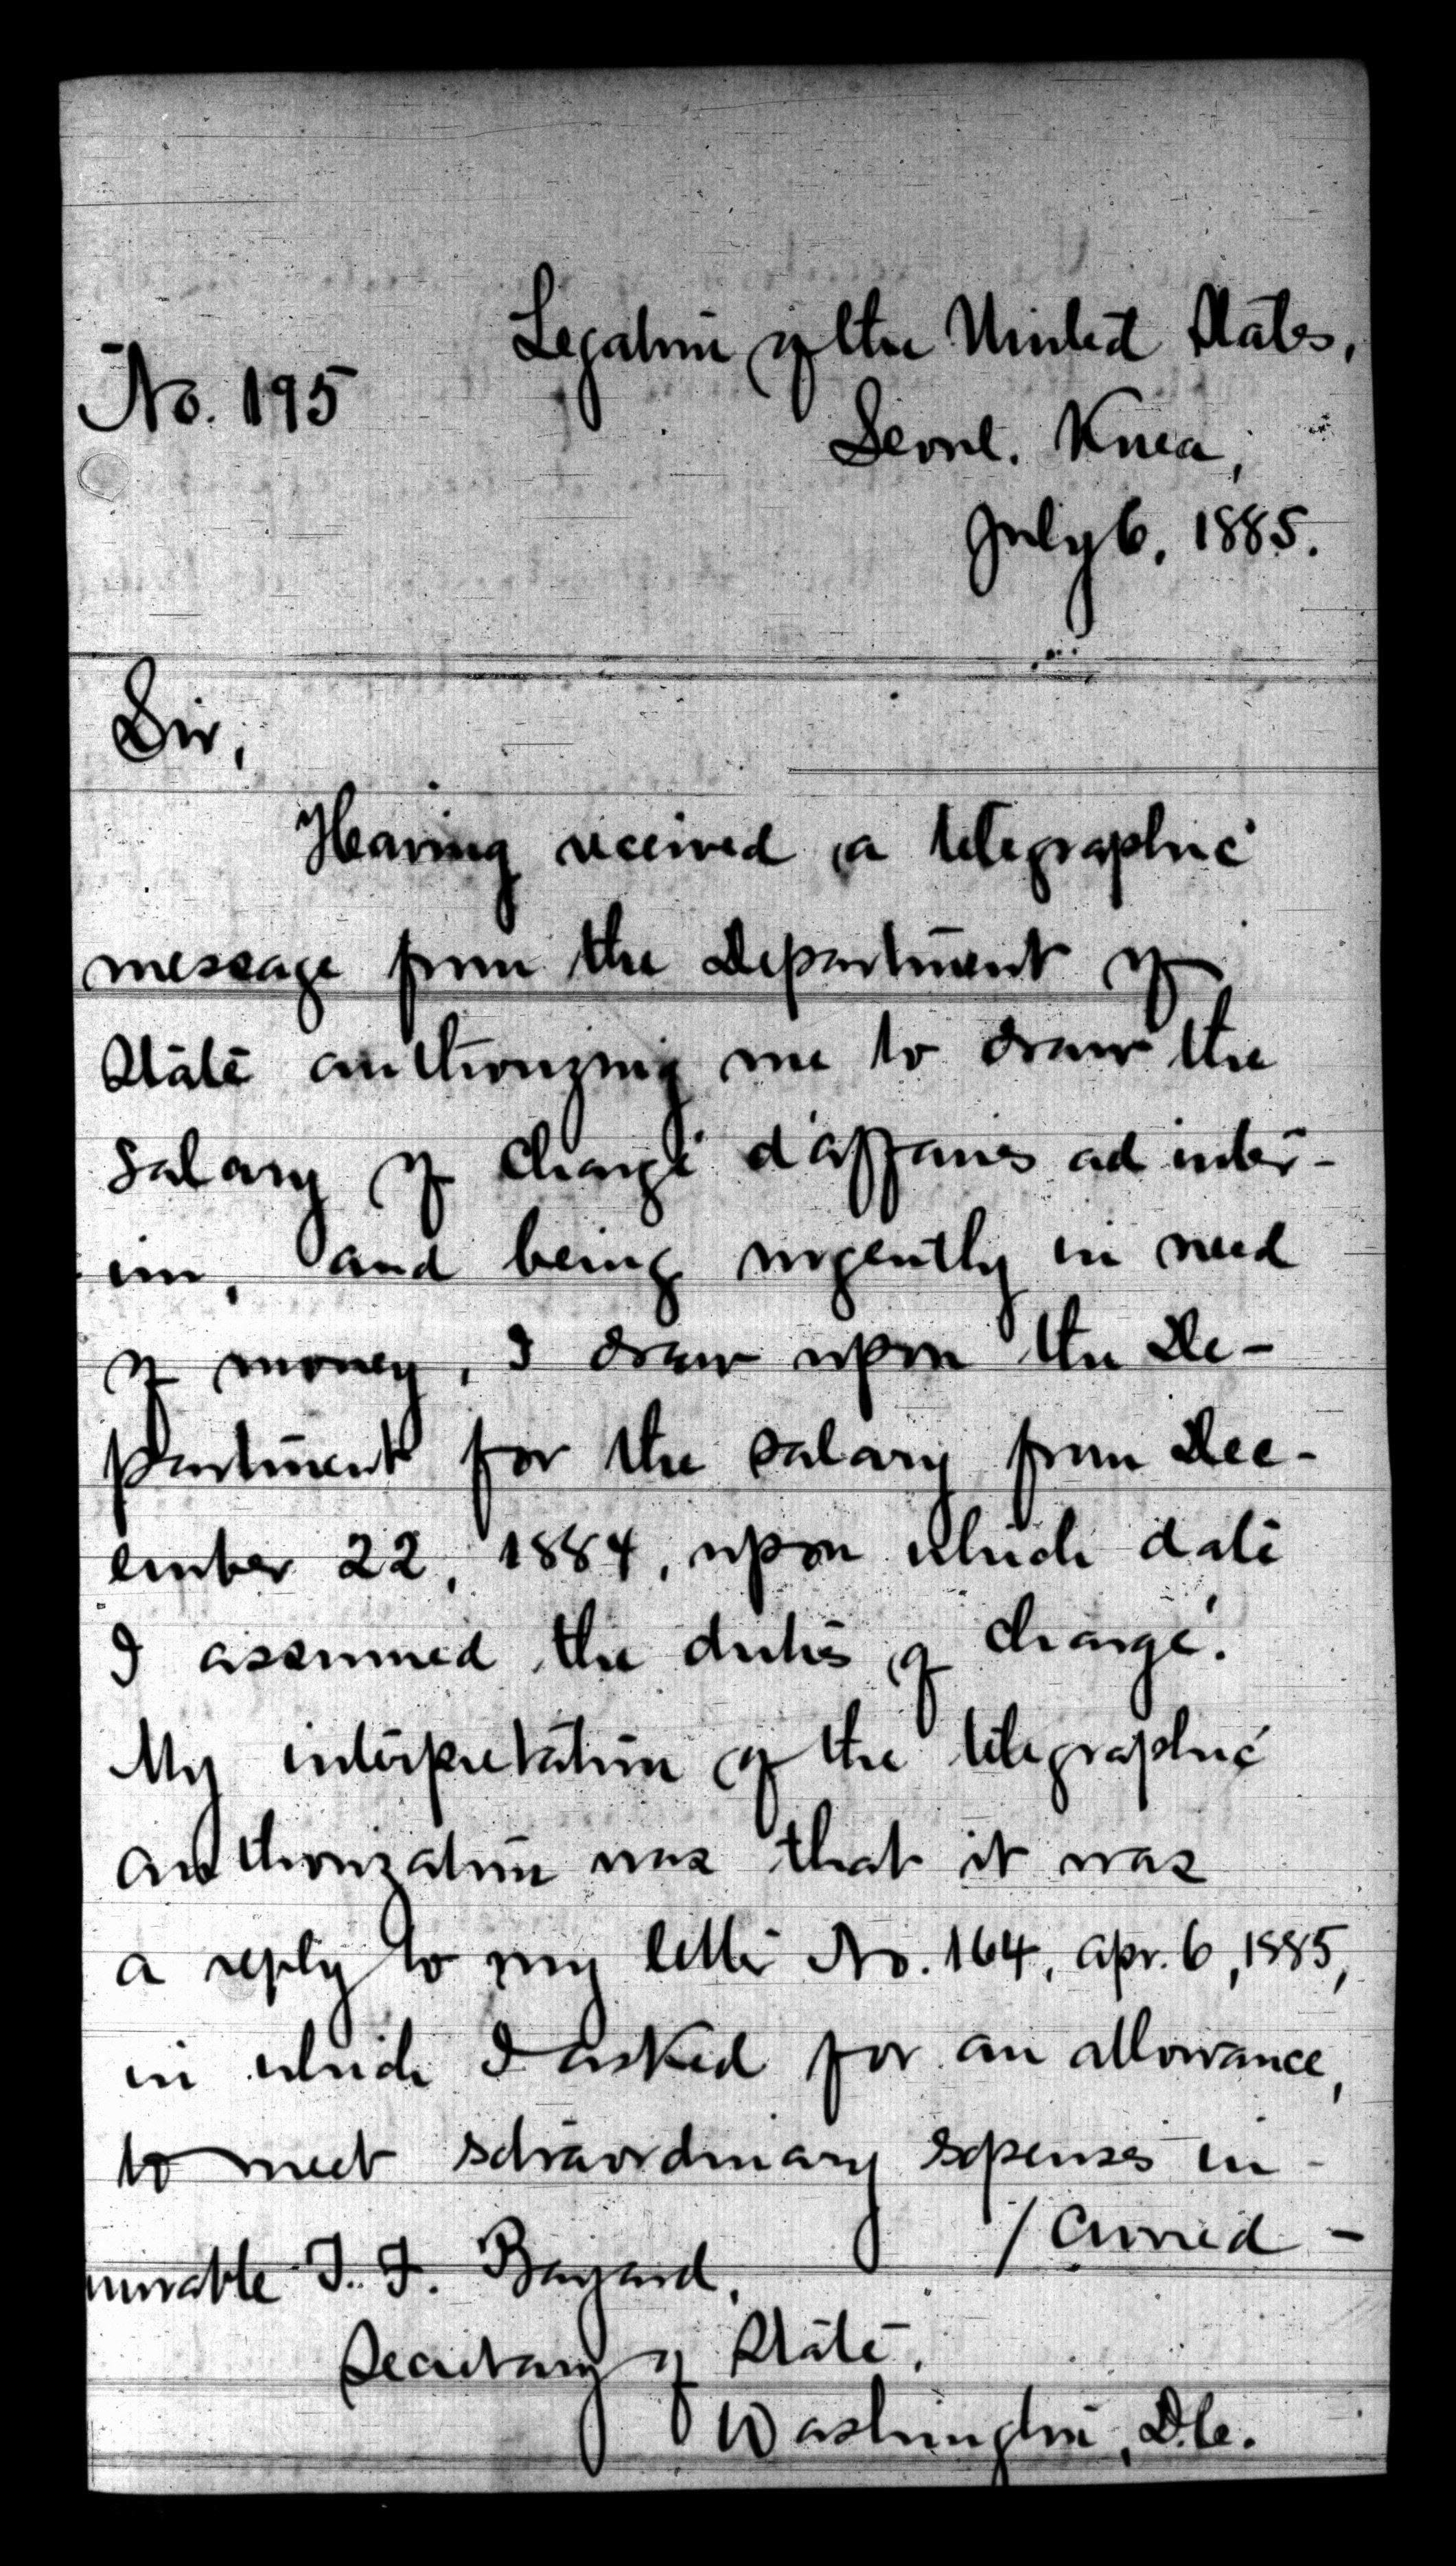 Legation of the United States,
No. 195
Seoul. Korea,
July 6, 1885.
Sir,
Having received a telegraphic
message from the Department of
State authorizing me to draw the
salary of chargé d'affaires ad inter-
im, and being urgently in need
of money, I draw upon the De-
partment for the salary from Dec-
ember 22, 1884, upon which date
I assumed the duties of chargé.
My interpretation of the telegraphic
authorization was that it was
a reply to my letter No. 164, Apr. 6, 1885,
in which I asked for an allowance,
to meet extraordinary expenses in-
/ curred -
norable T. F. Bayard,
Secretary of State,
Washington, D.C.